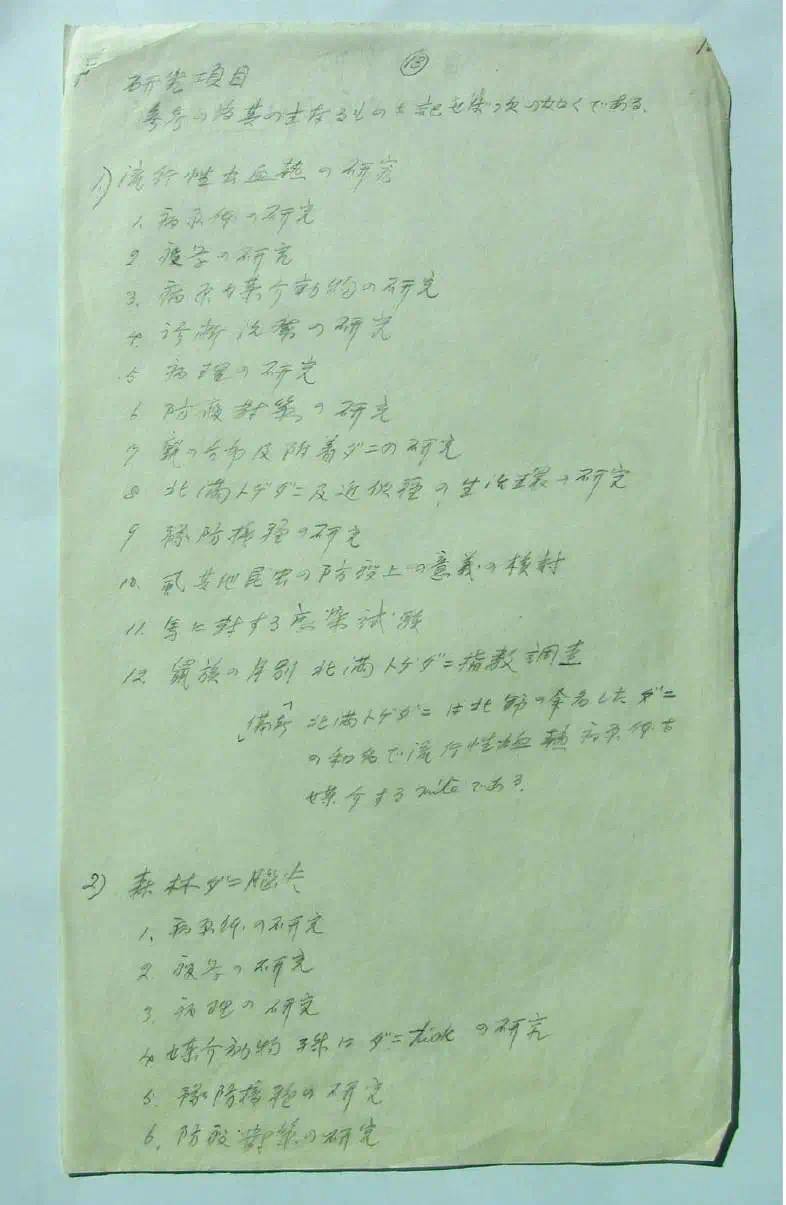 13
研究項目
参考の為其の主なるものを記せば次の如くである.
1) 流行性出血熱の研究
1. 病原体の研究
2 疫学の研究
3. 病原媒介動物の研究
4. 診断治療の研究
5 病理の研究
6 防疫対策の研究
7 鼠の分布及附着ダニの研究
8 北満トゲダニ及近似種の生活環の研究
9 予防接種の研究
10. 昆虫の防疫上の意義の検討
11. 馬に対する感染試験
12 鼠族の月別北満トゲダニ指数調査
「備考」 北満トゲダニは北野の命名したダニ
の和名で流行性出血熱病原体を
媒介するmiteである.
2) 森林ダニ脳炎
1. 病原体の研究
2. 疫学の研究
3. 病理の研究
4 媒介動物 殊にダニtickの研究
5. 予防接種の研究
6. 防疫対策の研究